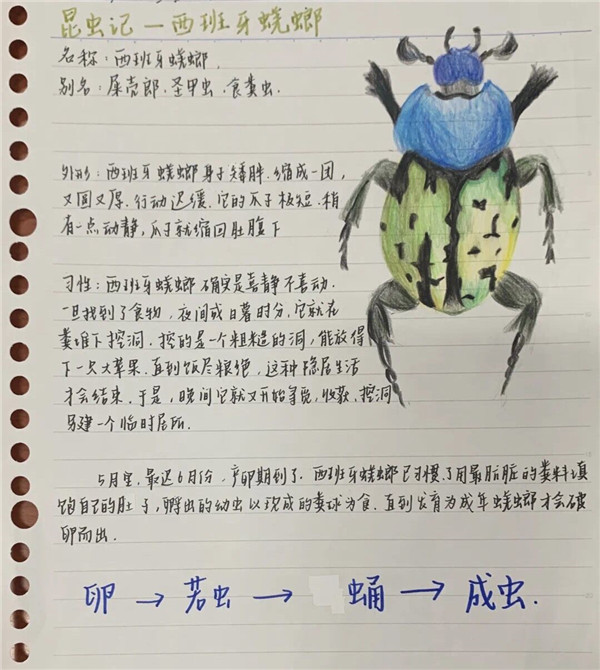 昆虫记—西班牙蜣螂
名称：西班牙蜣螂.
别名：屎壳郎.圣甲虫.食粪虫.
外形：西班牙蜣螂身子矮胖.缩成一团，
又圆又厚.行动迟缓.它的爪子极短.稍
有一点动静，爪子就缩回肚腹下
习性：西班牙蜣螂确实是喜静不喜动.
一旦找到了食物，夜间或日暮时分，它就在
粪堆下挖洞.挖的是一个粗糙的洞，能放得
下一只大苹果.直到饭尽粮绝，这种隐居生活
才会结束.于是，晚间它就又开始寻觅，收获，挖洞
另建一个临时居所.
5月里，最迟6月份，产卵期到了.西班牙蜣螂已习惯了用最肮脏的粪料填
饱自己的肚子，孵出的幼虫以现成的粪球为食.直到发育为成年蜣螂才会破
卵而出.
卵→若虫→ 蛹→成虫.